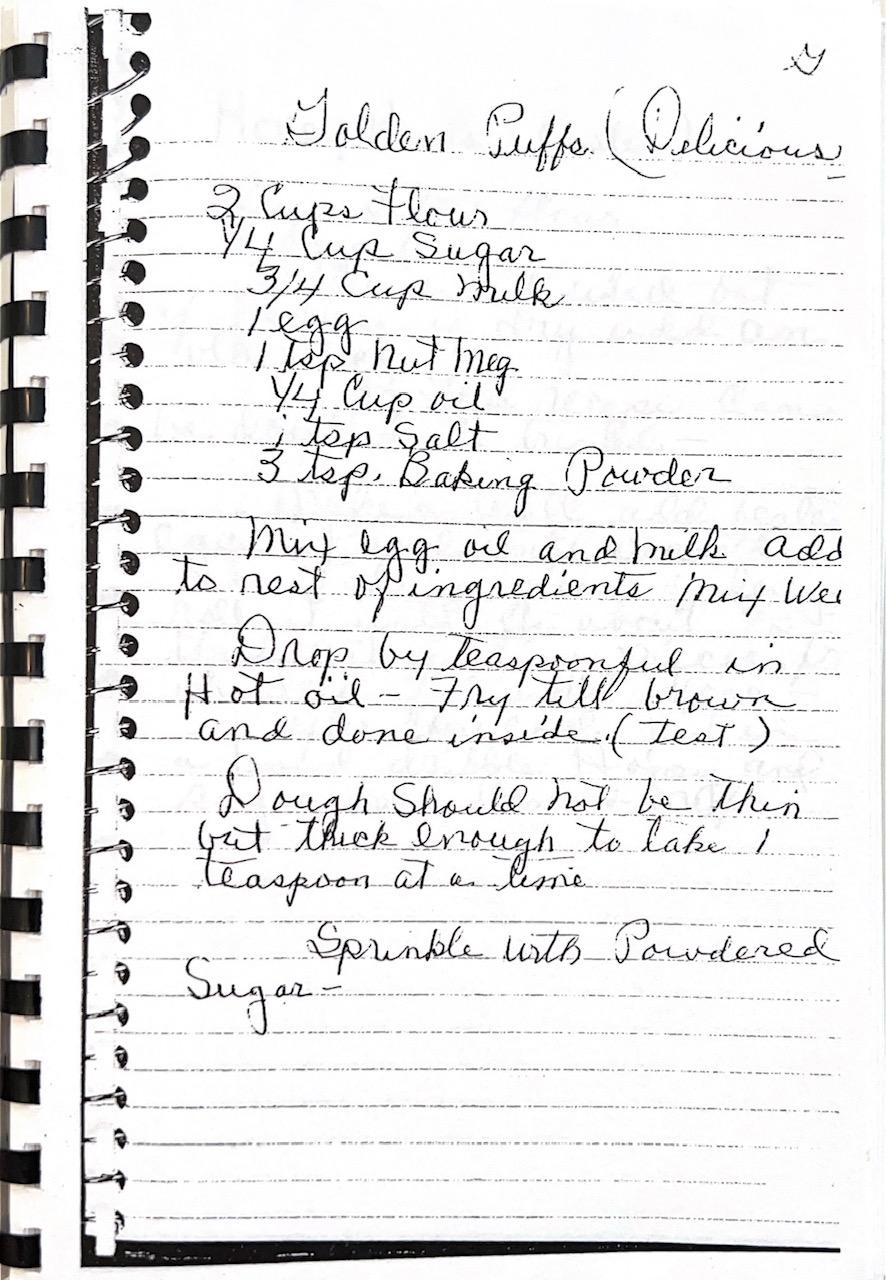 Golden Puffs (Delicious
2 Cups Flour
1/4 Cup Sugar
3/4 Cup Milk
1 egg
1 tsp Nut Meg
1/4 Cup oil
1 tsp Salt
3 tsp. Baking Powder
Mix egg oil and milk add
to rest of ingredients Mix
Drop by teaspoonful in
Hot oil - Fry till brown
and done inside. (test)
Dough Should not be thin
but thick enough to take 1
teaspoon at a time
Sprinkle with Powdered
Sugar -